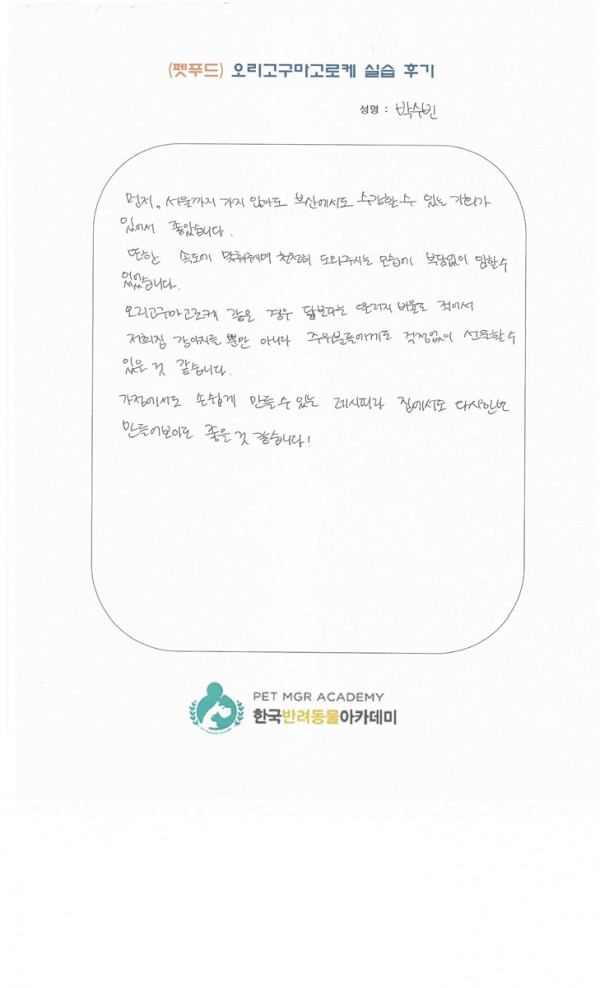 (펫푸드) 오리고구마고로케 실습 후기
성명 : 박수빈
먼저, 서울까지 가지 않아도 부산에서도 수강할 수 있는 기회가
있어서 좋았습니다.
또한 속도에 맞춰주며 천천히 도와주시는 모습에 부담없이 임할 수
있었습니다.
오리고구마고로케 같은 경우 닭보다는 알러지 비율도 적어서
저희집 강아지들 뿐만 아니라 주위분들에게도 걱정없이 선물할 수
있을 것 같습니다.
가정에서도 손쉽게 만들 수 있는 레시피라 집에서도 다시한번
만들어보아도 좋을 것 같습니다!
PET MGR ACADEMY
한국반려동물아카데미